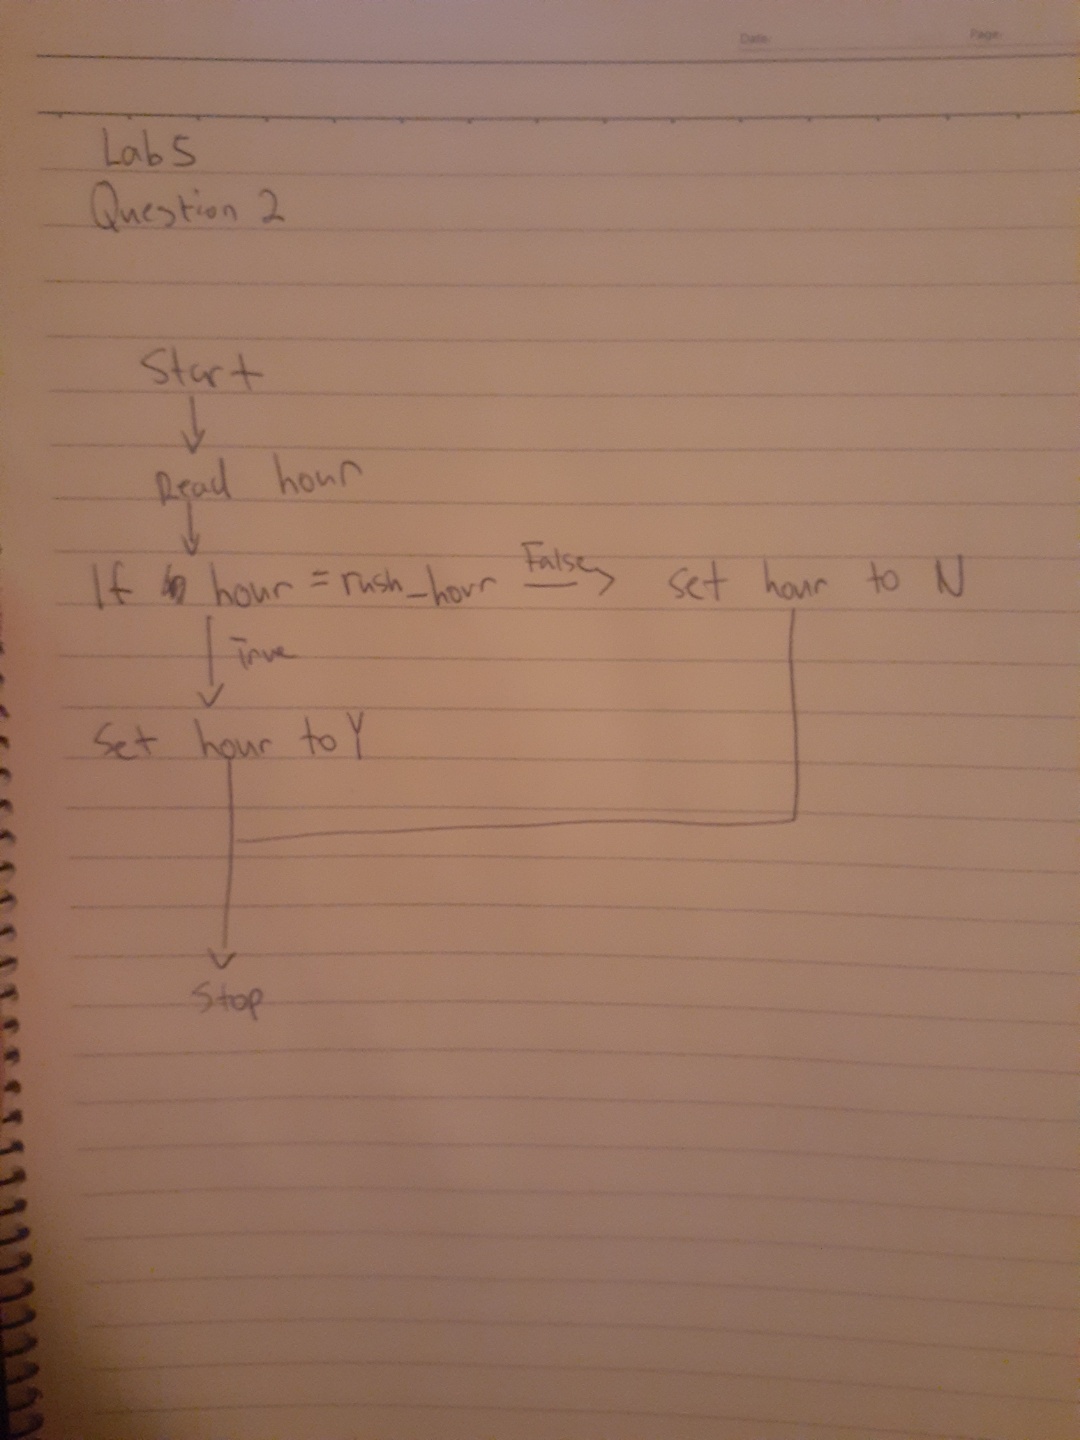 Date:
Page:
Lab 5
Question 2
Start
Read hour
If hour = rush_hour False set hour to N
True
Set hour to Y
Stop